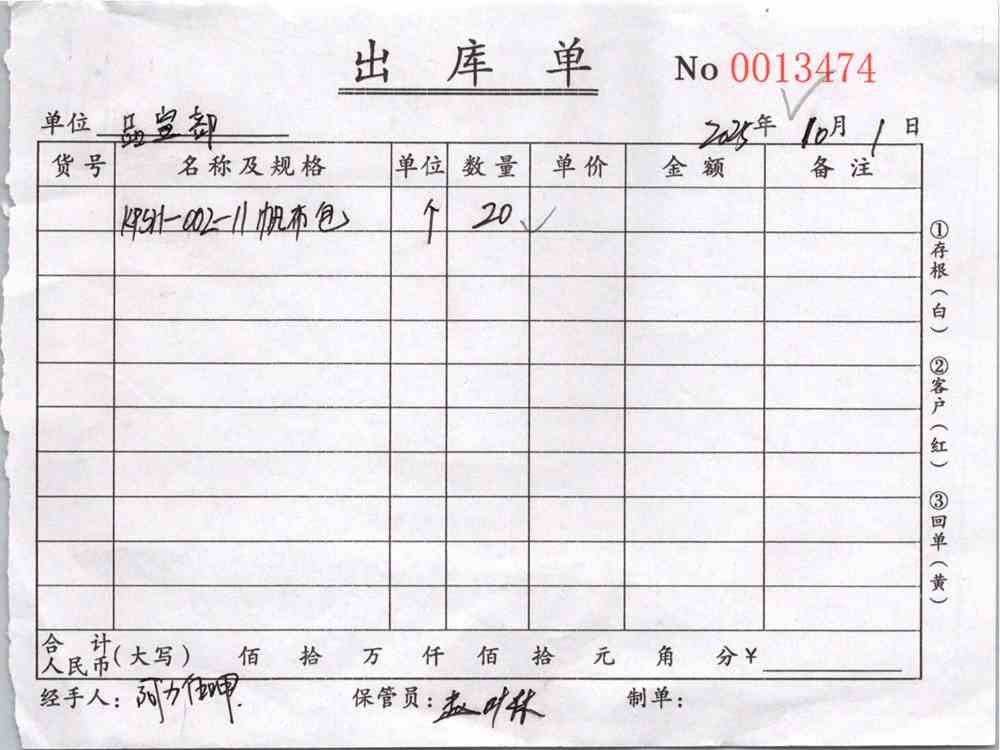 出库单
No 0013474
单位 品宣部 2025年10月1日
货号 名称及规格 单位 数量 单价 金额 备注
KPSH-002-11帆布包 个 20
合计人民币(大写) 佰 拾 万 仟 佰 拾 元 角 分¥
经手人: 阿力 保管员: 赵叶林 制单:
①存根(白)
②客户(红)
③回单(黄)